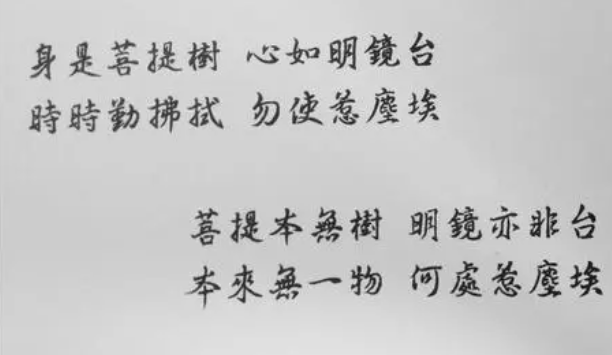 身是菩提樹 心如明鏡台
時時勤拂拭 勿使惹塵埃
菩提本無樹 明鏡亦非台
本來無一物 何處惹塵埃